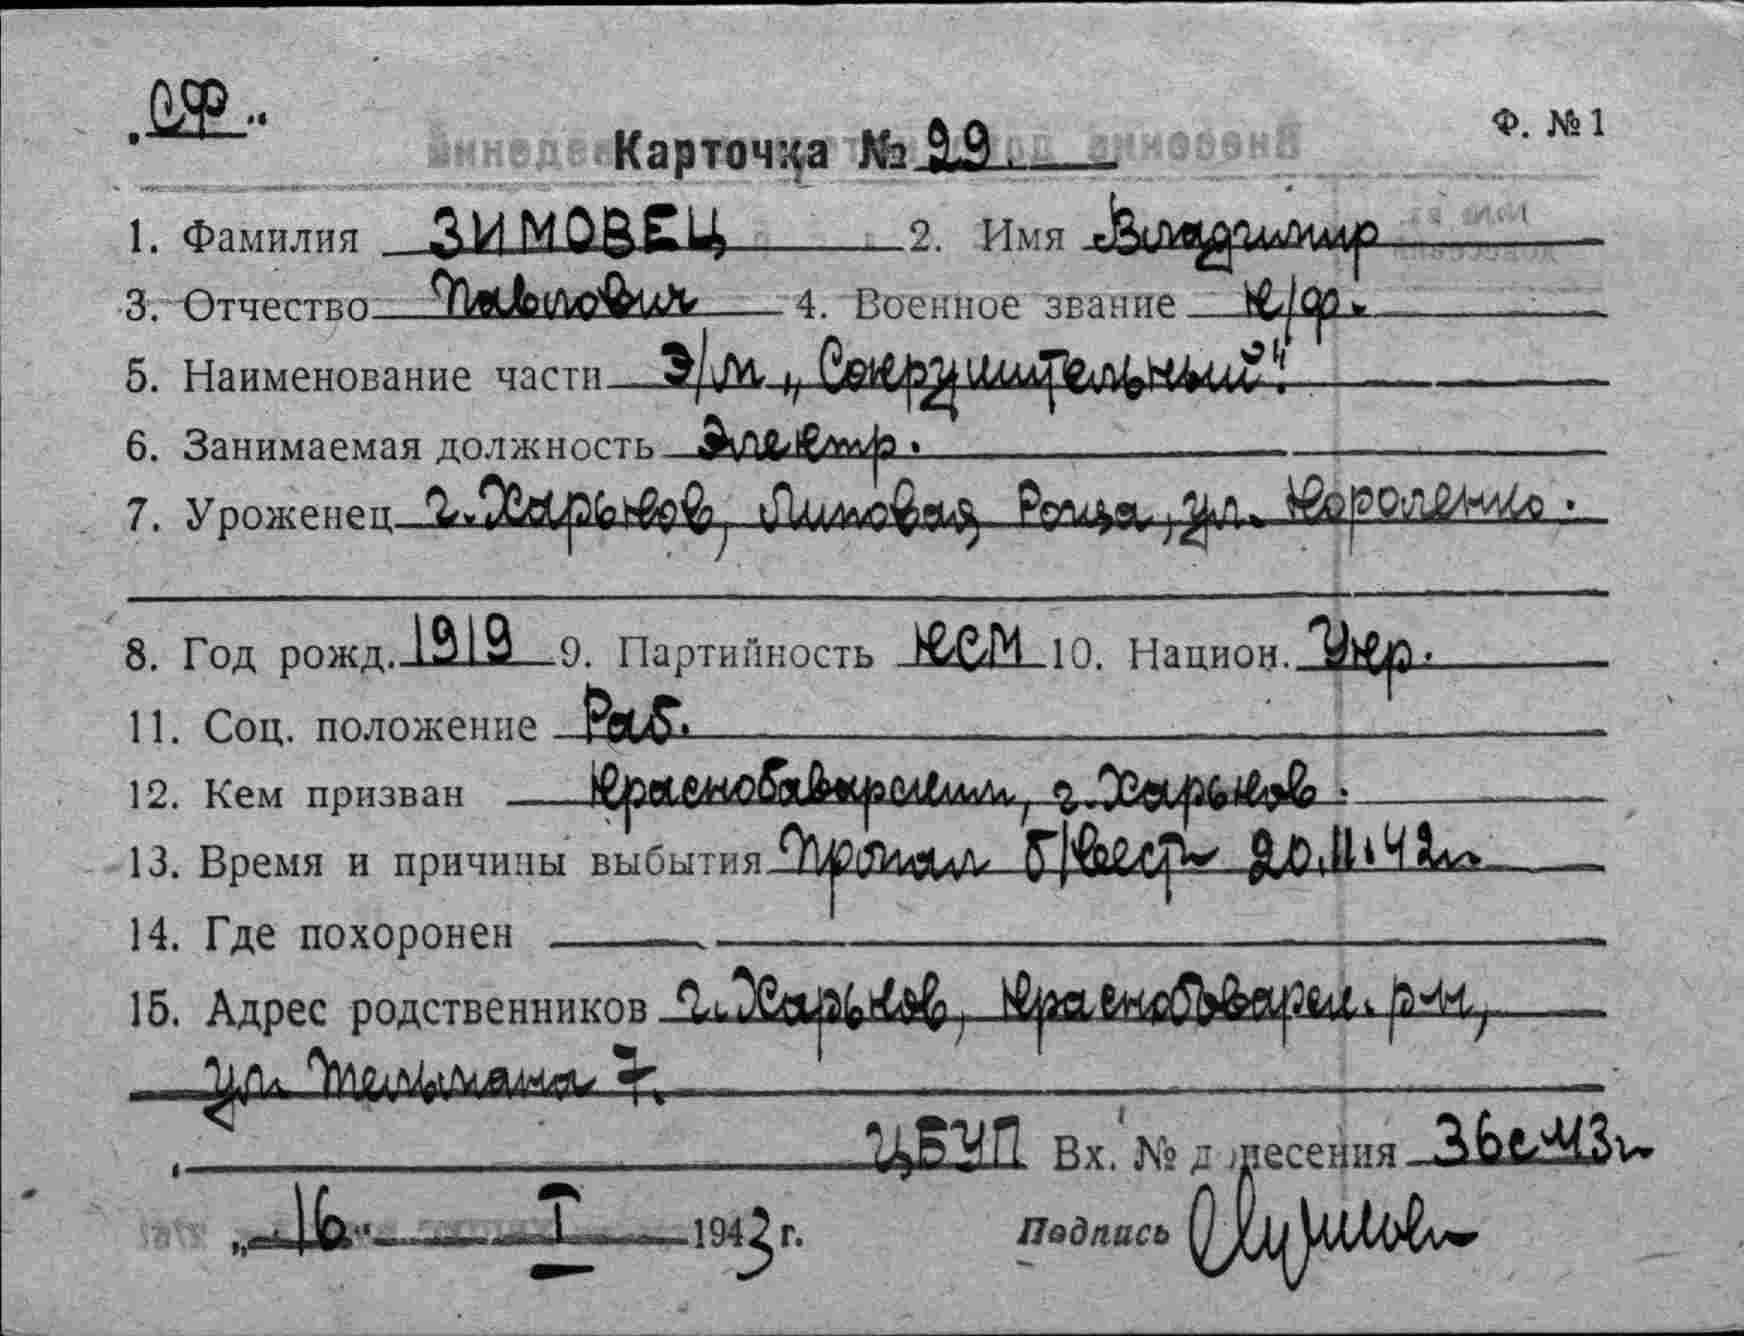 „СФ"
Ф. № 1
Карточка № 29.
1. Фамилия ЗИМОВЕЦ 2. Имя Владимир
3. Отчество Павлович 4. Военное звание к/ф.
5. Наименование части Э/м „Сокрушительный".
6. Занимаемая должность Электр.
7. Уроженец г. Харьков, Липовая Роща, ул. Короленко.
8. Год рожд. 1919 9. Партийность КСМ 10. Национ. Укр.
11. Соц. положение Раб.
12. Кем призван Краснобаварским, г. Харьков.
13. Время и причины выбытия Пропал б/вест 20.11.42г.
14. Где похоронен
15. Адрес родственников г. Харьков, Краснобаварск. р-н,
ул. Тельмана 7.
ЦБУП Вх. № донесения 36с 43г
„16" I 1943 г. Подпись